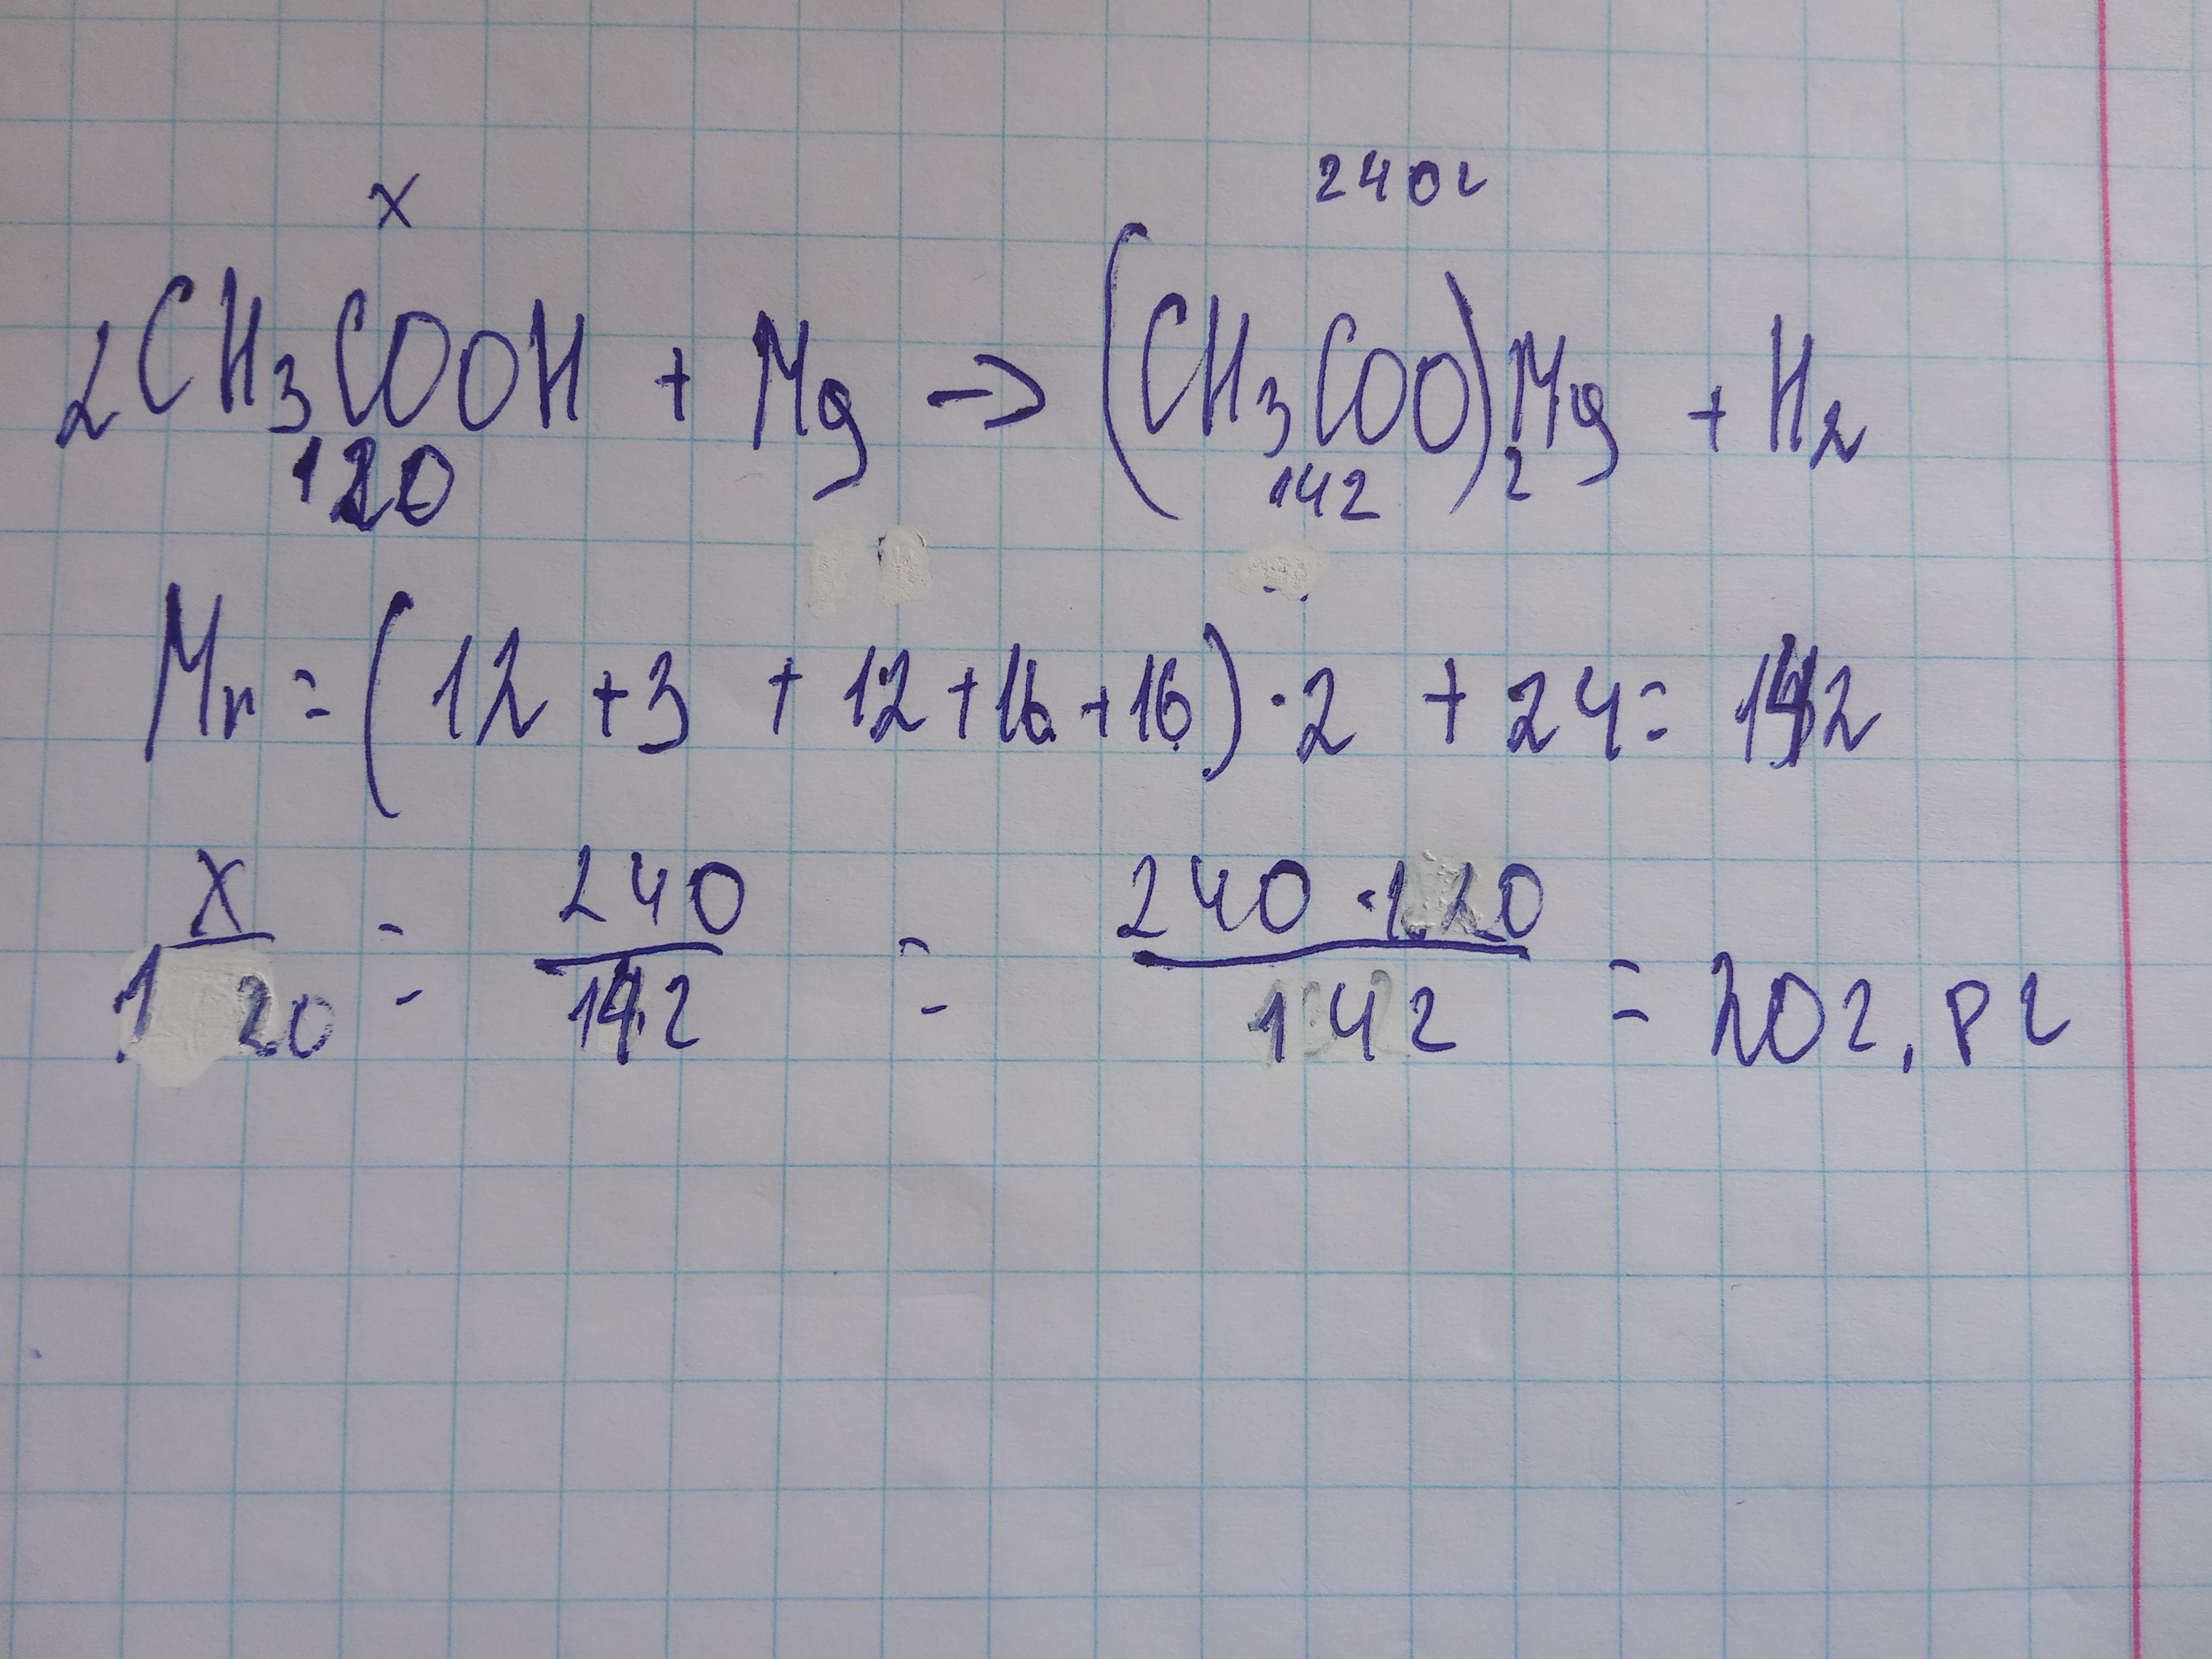 x 240г
2CH₃COOH + Mg -> (CH₃COO)₂Mg + H₂
120 142
Mr = (12 + 3 + 12 + 16 + 16) · 2 + 24 = 142
x/120 = 240/142 = 240 · 120/142 = 202, 8 г